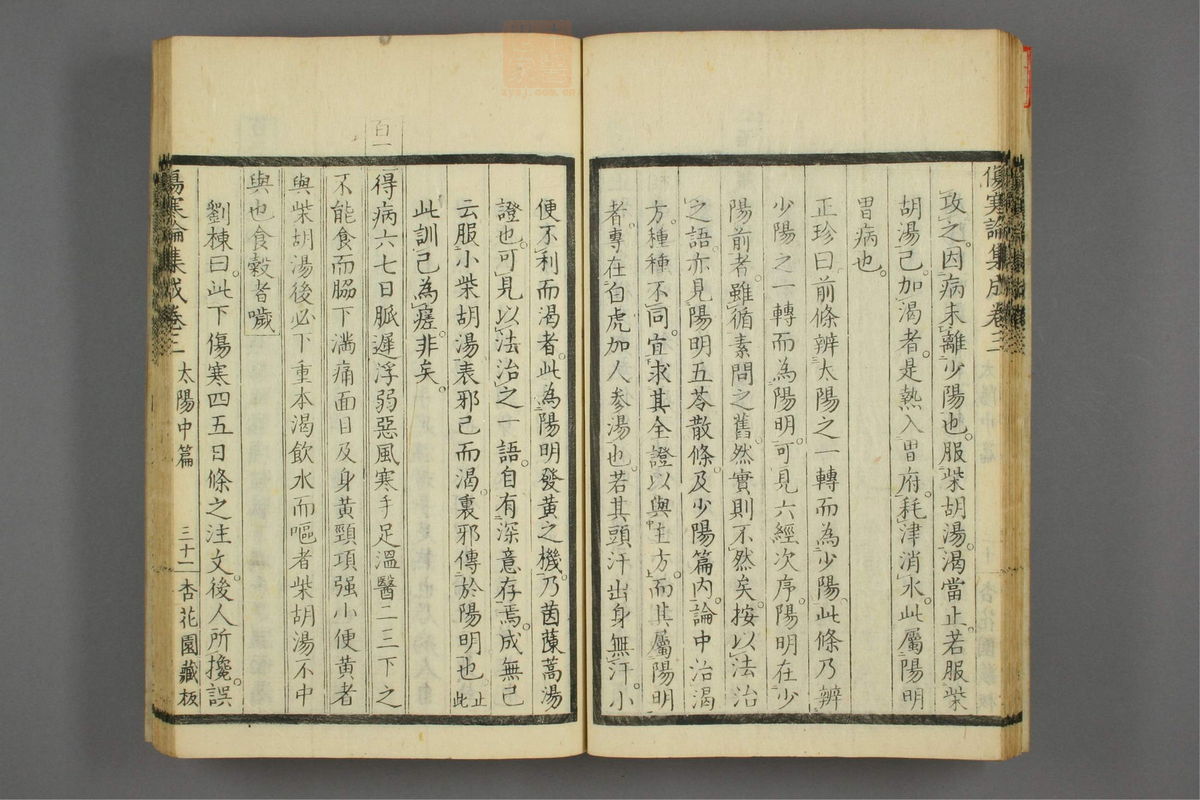 傷寒論集成卷三
攻之因病未離少陽也服柴胡湯渴當止若服柴
胡湯已加渴者是熱入胃府耗津消水此屬陽明
胃病也
正珍曰前條辨太陽之一轉而為少陽此條乃辨
少陽之一轉而為陽明可見六經次序陽明在少
陽前者雖循素問之舊然實則不然矣按以法治
之語亦見陽明五苓散條及少陽篇內論中治渴
方種種不同宜求其全證以與主方而其屬陽明
者專在白虎加人參湯也若其頭汗出身無汗小
便不利而渴者此為陽明發黃之機乃茵蔯蒿湯
證也可見以法治之一語自有深意存焉成無己
云服小柴胡湯表邪已而渴裏邪傳於陽明也止此
此訓已為瘥非矣
百一
得病六七日脈遲浮弱惡風寒手足溫醫二三下之
不能食而脇下滿痛面目及身黃頸項强小便黃者
與柴胡湯後必下重本渴飲水而嘔者柴胡湯不中
與也食穀者噦
劉棟曰此下傷寒四五日條之注文後人所攙誤
傷寒論集成卷三 太陽中篇 三十二 杏花園藏板